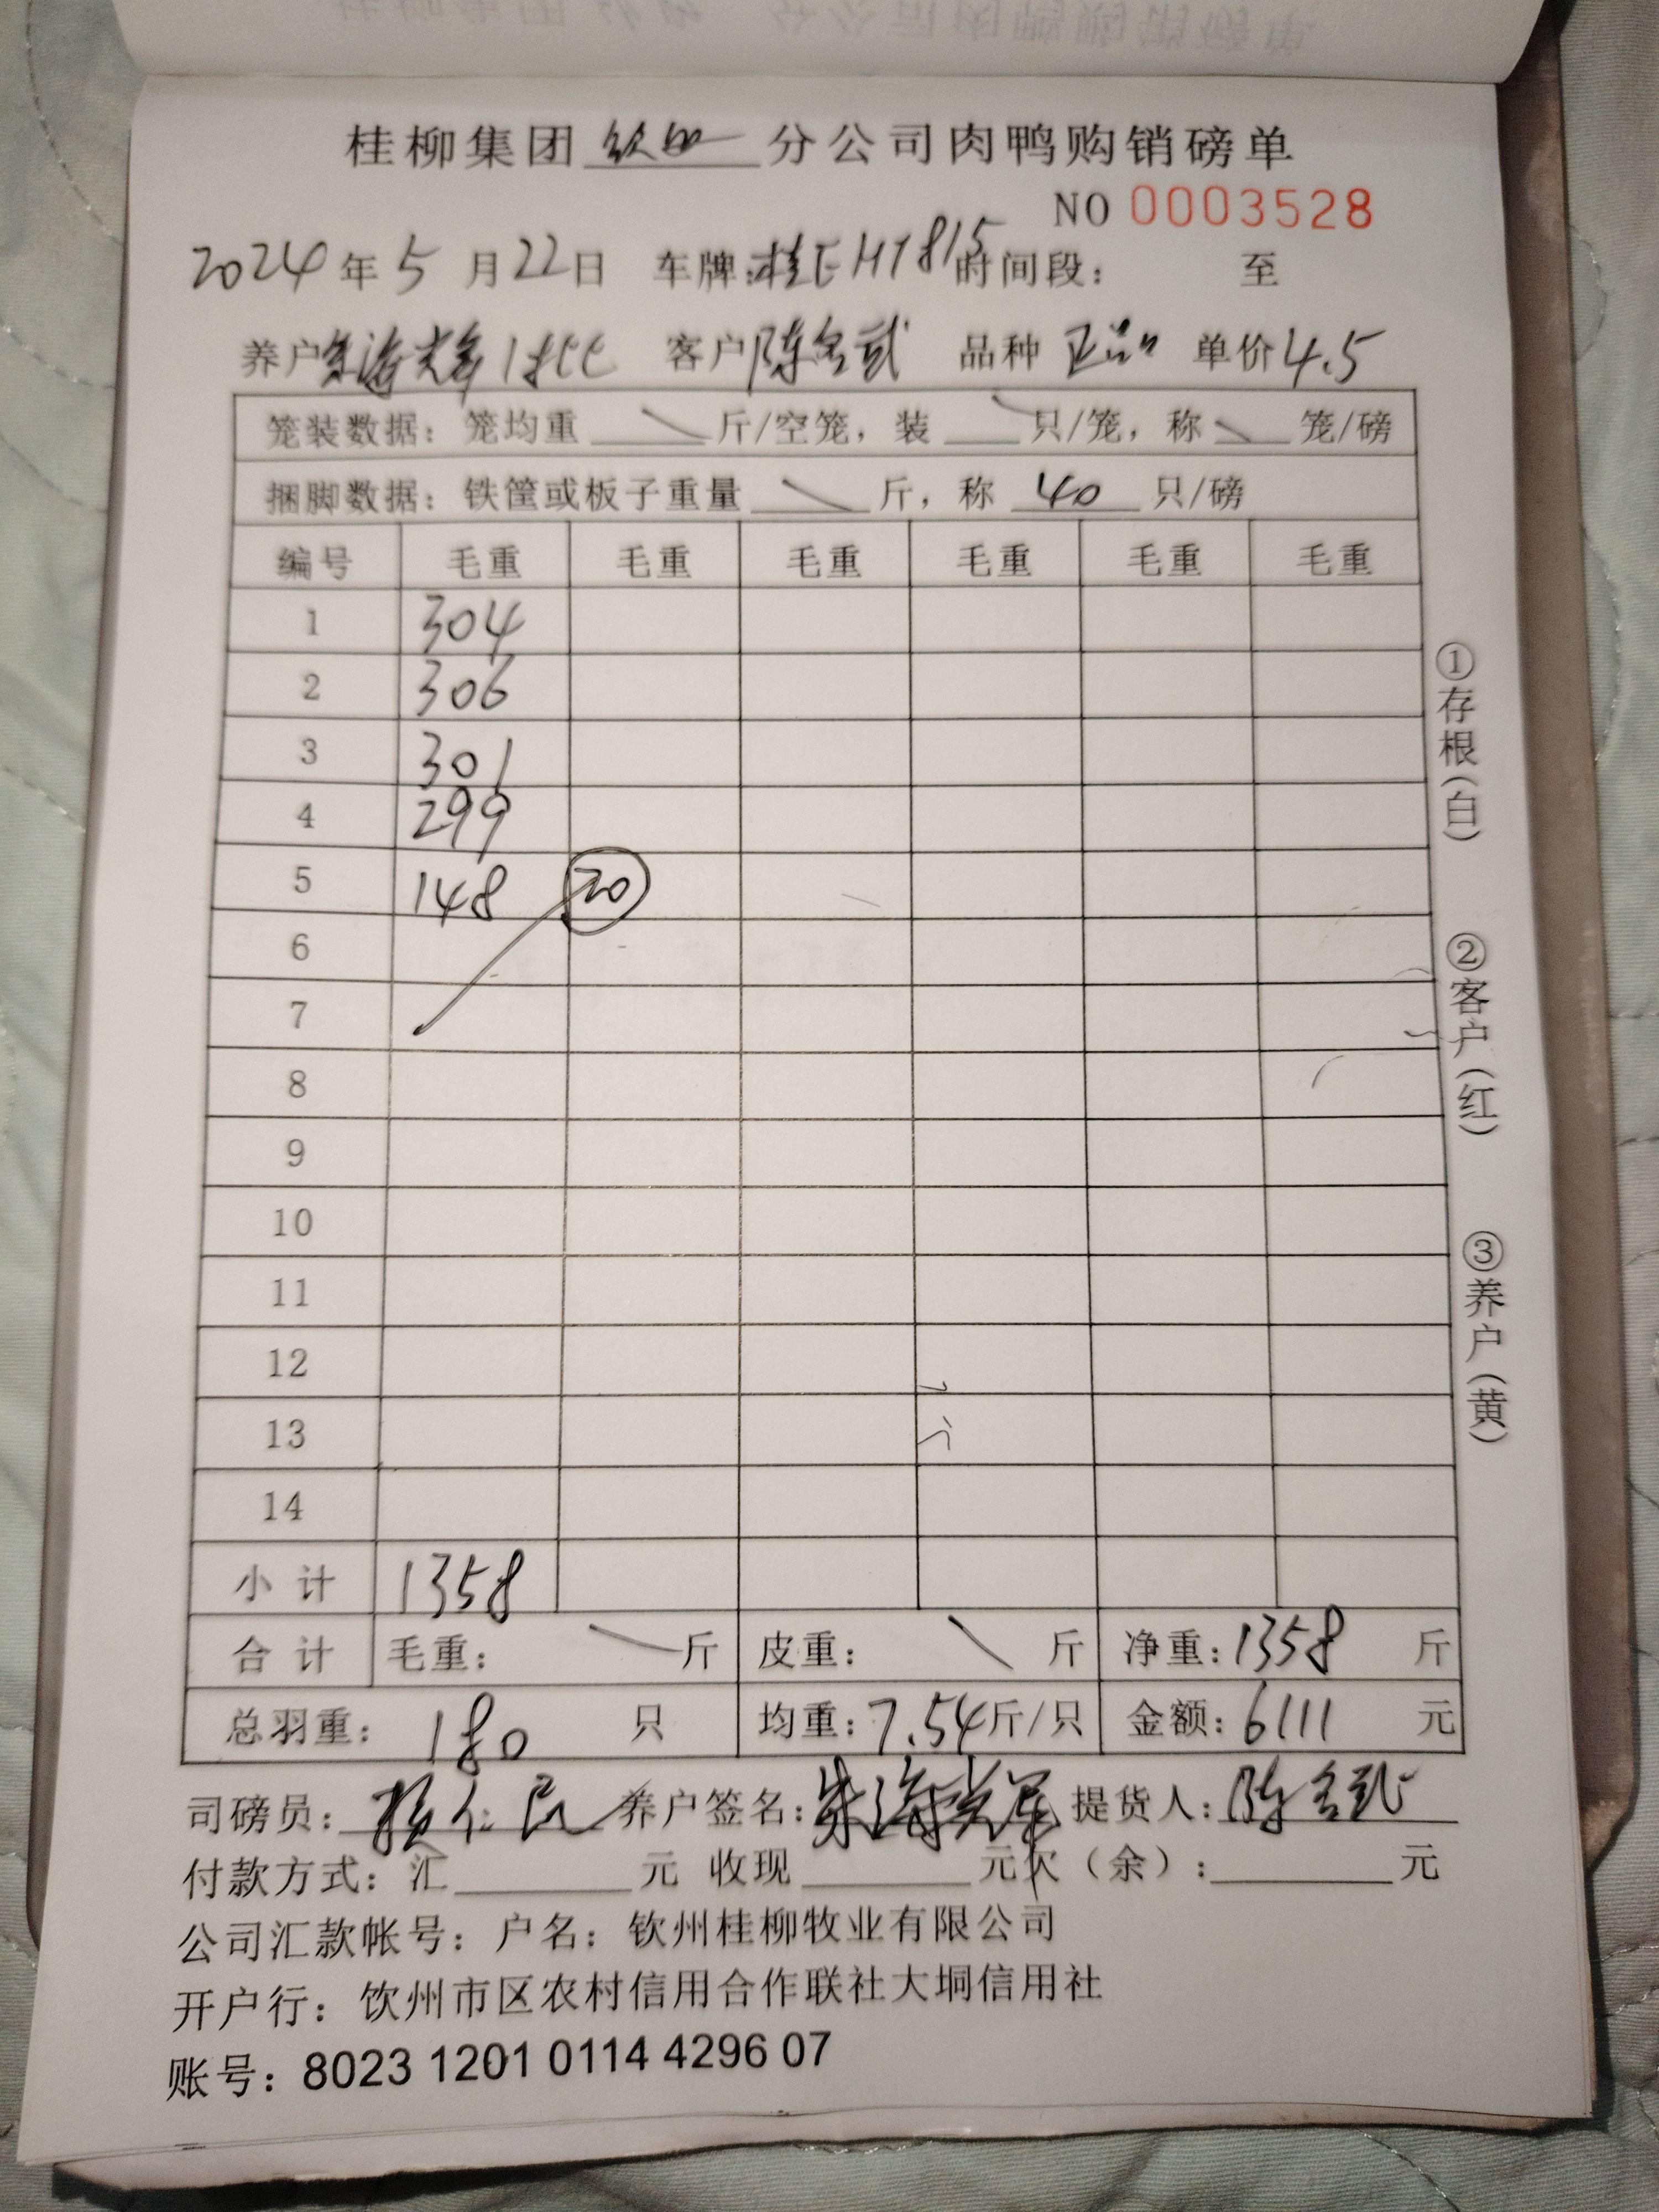 桂柳集团 钦州 分公司肉鸭购销磅单
NO 0003528
2024 年 5 月 22 日 车牌: 桂E H7815 时间段: 至
养户 朱海光军 客户 陈名武 品种 正品 单价 4.5
笼装数据: 笼均重 斤/空笼, 装 只/笼, 称 笼/磅
捆脚数据: 铁筐或板子重量 斤, 称 40 只/磅
编号 毛重 毛重 毛重 毛重 毛重 毛重
1 304
2 306
3 301
4 299
5 148 20
6
7
8
9
10
11
12
13
14
小计 1358
合计 毛重: 斤 皮重: 斤 净重: 1358 斤
总羽重: 180 只 均重: 7.54 斤/只 金额: 6111 元
司磅员: 仁良 养户签名: 朱海光军 提货人: 陈名武
付款方式: 汇 元 收现 元 欠(余): 元
公司汇款帐号: 户名: 钦州桂柳牧业有限公司
开户行: 饮州市区农村信用合作联社大垌信用社
账号: 8023 1201 0114 4296 07
①存根(白)
②客户(红)
③养户(黄)